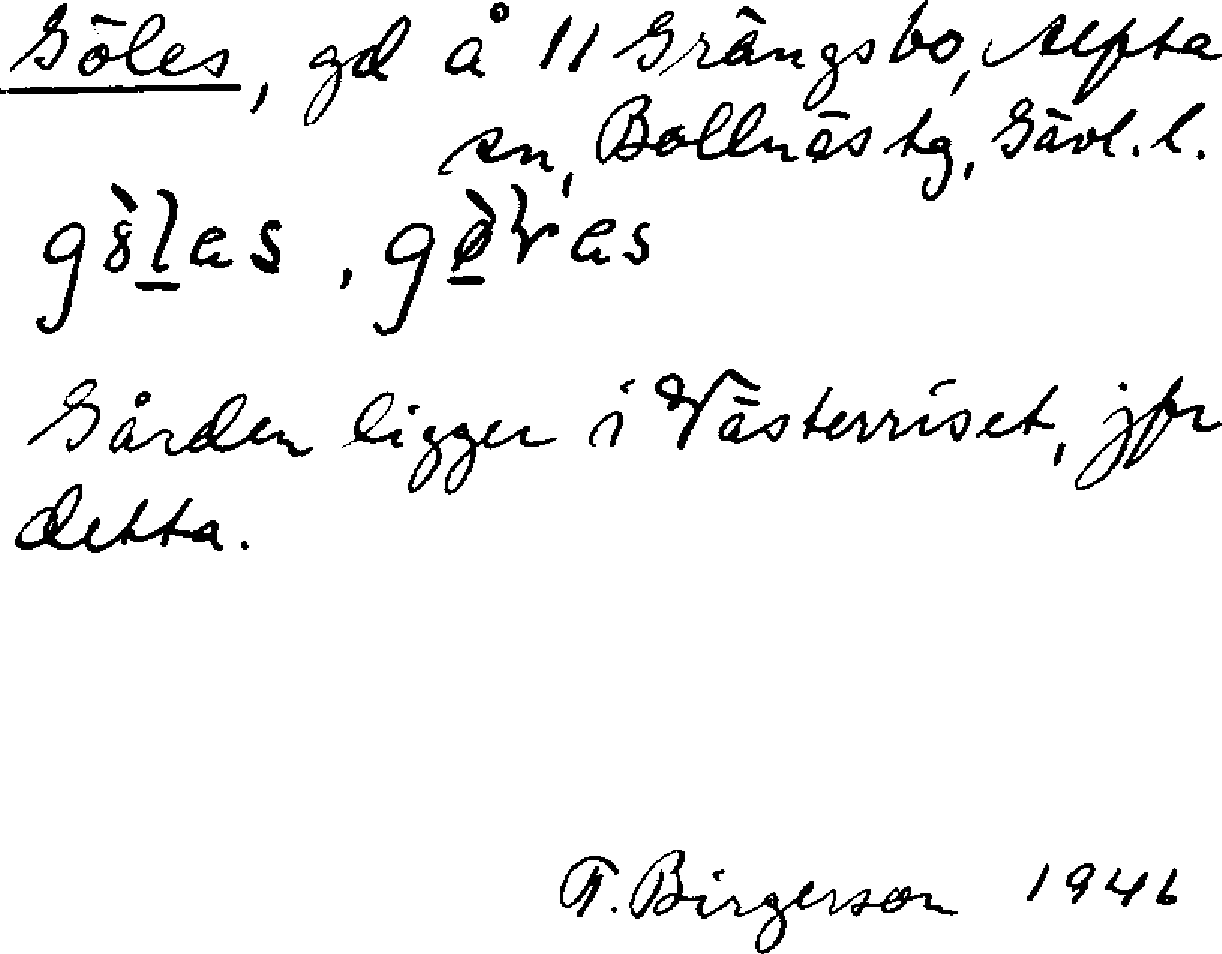 Göles, gd å 11 Grängsbo, Alfta
sn, Bollnäs tg, Gävl. l.
Gården ligger i Västerriset, jfr
detta.
F. Birgerson 1946